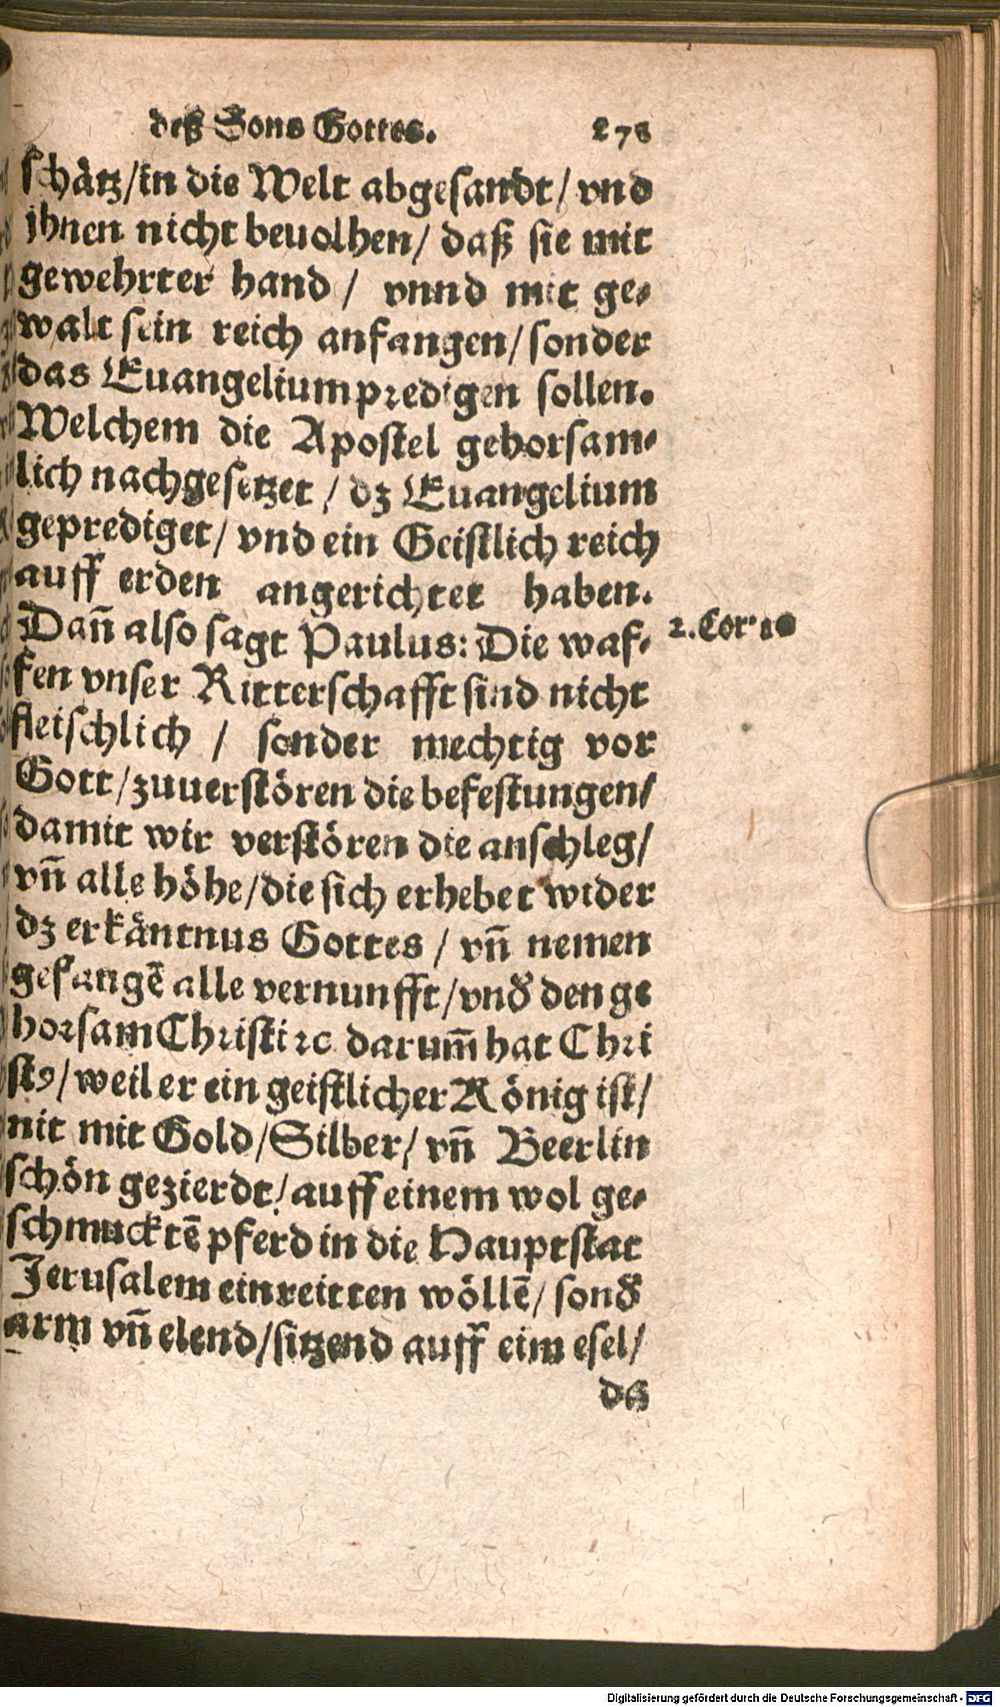 deß Sons Gottes. 278
schätz/in die Welt abgesandt/ vnd
ihnen nicht beuolhen/ daß sie mit
gewehrter hand / vnnd mit ge-
walt sein reich anfangen/ sonder
das Euangelium predigen sollen.
Welchem die Apostel gehorsam-
lich nachgesetzet / dz Euangelium
geprediget/ vnd ein Geistlich reich
auff erden angerichtet haben.
Dañ also sagt Paulus: Die waf- 2. Cor. 10
fen vnser Ritterschafft sind nicht
fleischlich / sonder mechtig vor
Gott/zuuerstören die befestungen/
damit wir verstören die anschleg/
vñ alle höhe/die sich erhebet wider
dz erkäntnus Gottes / vñ nemen
gefangē alle vernunfft/vnd̕ den ge
horsam Christi ꝛc. darum̄ hat Chri
stꝰ/ weil er ein geistlicher König ist/
nit mit Gold/Silber/ vñ Beerlin
schön gezierdt/ auff einem wol ge-
schmucktē pferd in die Hauptstat
Jerusalem einreitten wöllē/ sond̕
arm vñ elend/sitzend auff eim esel/